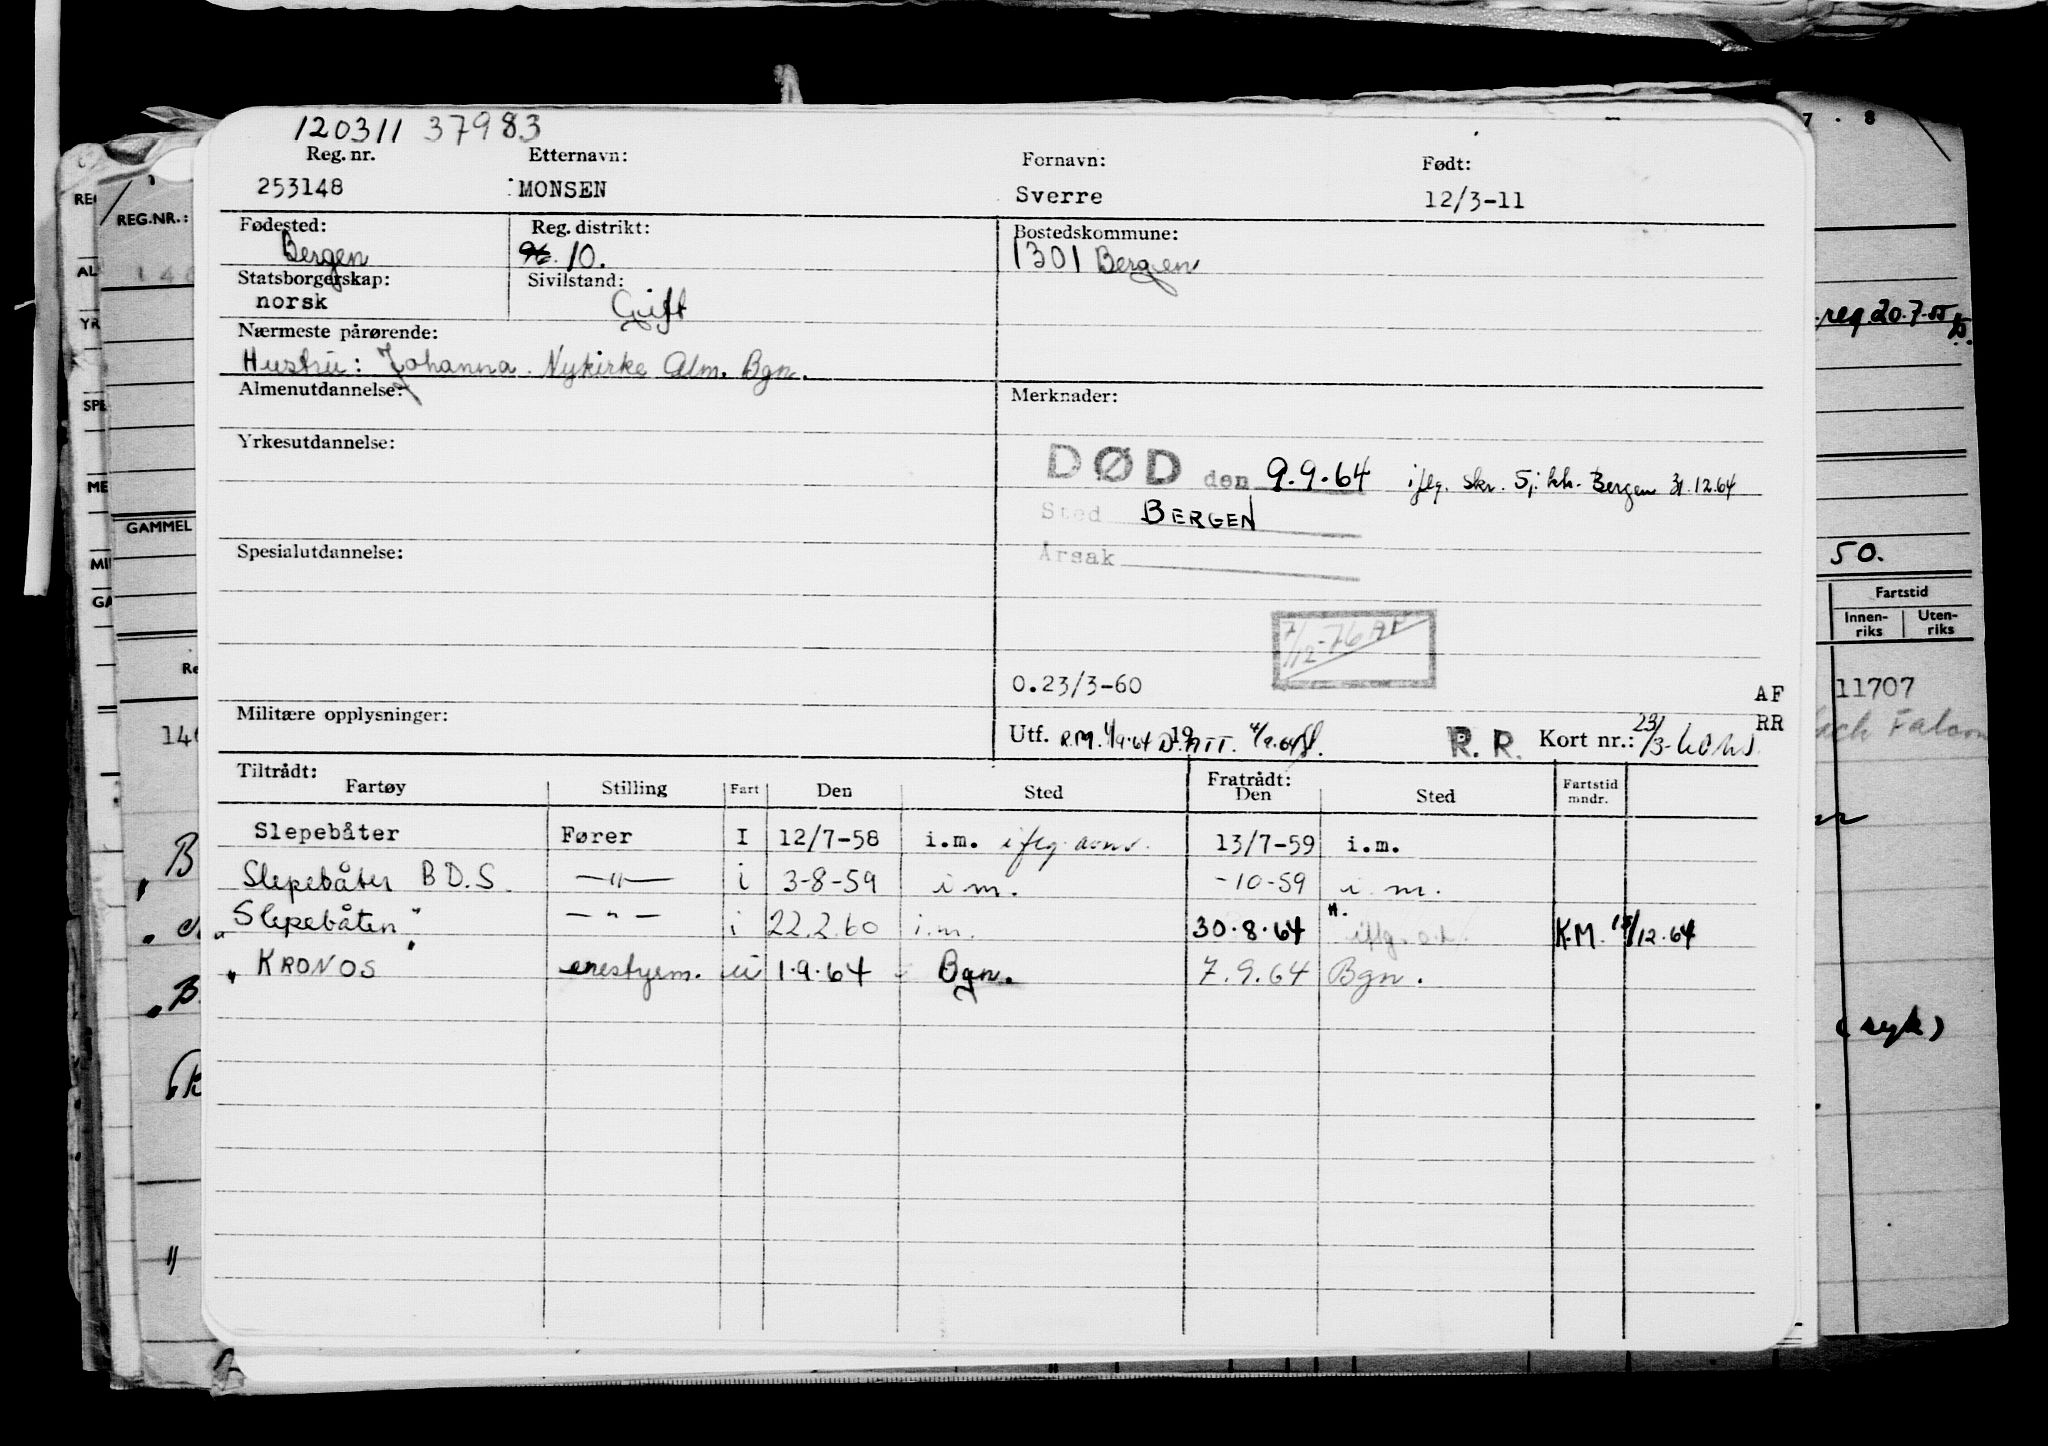 120311 37983
Reg. nr. Etternavn: Fornavn: Født:
253148 MONSEN Sverre 12/3-11
Fødested: Reg. distrikt: Bostedskommune:
Bergen 10. 1301 Bergen
Statsborgerskap: Sivilstand:
norsk Gift
Nærmeste pårørende:
Hustru: Johanna. Nykirke Alm. Bgn.
Almenutdannelse: Merknader:
Yrkesutdannelse:
DØD den 9.9.64 iflg. skr. Sj. kh. Bergen 31.12.64
Sted BERGEN
Spesialutdannelse: Årsak
7/12-76 AP
0.23/3-60
AF
RR
Militære opplysninger: Utf. R.M. 1/9.64 19 4/9.64 R.R. Kort nr.: 23/3-60
Tiltrådt: Fratrådt:
Fartøy Stilling Fart Den Sted Den Sted Fartstid mndr.
Slepebåter Fører I 12/7-58 i.m. iflg. 13/7-59 i.m.
Slepebåter B.D.S. —"— i 3-8-59 i m. -10-59 i m.
Slepebåten " — " — i 22.2.60 i.m. 30.8.64 iflg. K.M. /12.64
" KRONOS " enestyrm. ui 1.9.64 Bgn. 7.9.64 Bgn.
REG.NR.:
GAMMEL
7 . 8
reg. 20.7.55
50.
Fartstid
Innen-riks Uten-riks
11707
(syk)